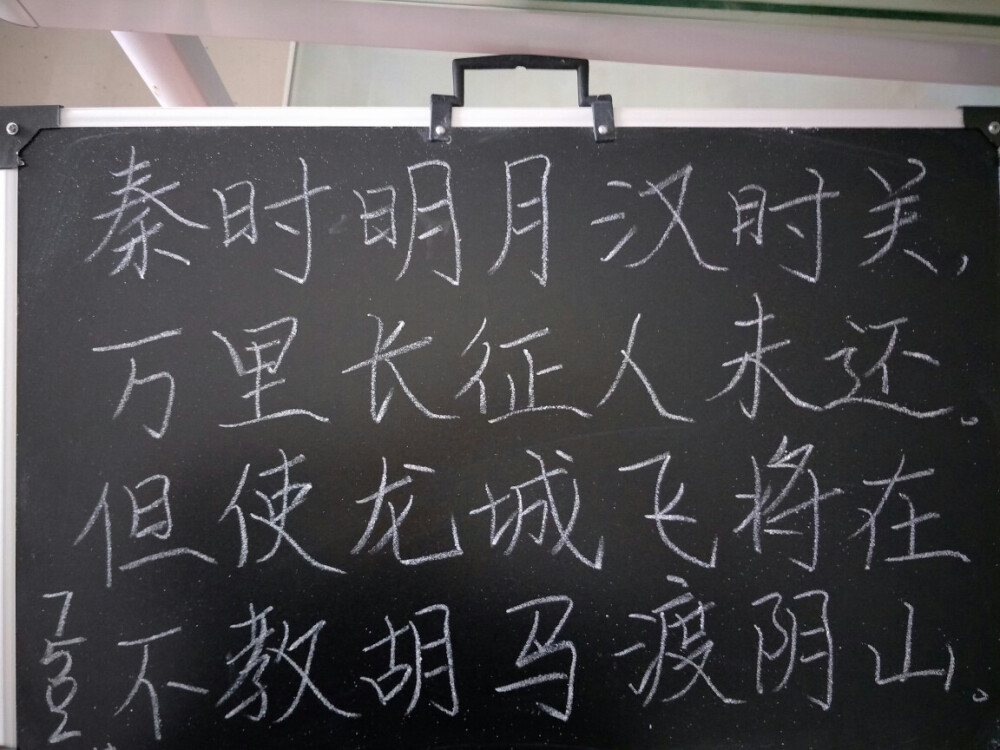 秦时明月汉时关,
万里长征人未还。
但使龙城飞将在
不教胡马渡阴山。
7502